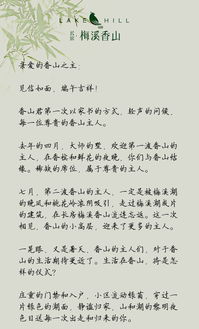 LAKE HILL
梅溪香山
亲爱的香山之主,
见信如面,端午吉祥!
香山君第一次以家书的方式,轻声的问候,
每一位尊贵的香山主人。
去年的四月,大师的墅,欢迎第一波香山的
主人,在香槟和鲜花的夜晚,你们与香山结
缘。稀缺的席位,属于尊贵的主人。
七月,第一波香山的主人,一定是被梅溪湖
的晚风和桃花岭凉阴吸引,走过梅溪湖夜片
的建筑,在长岛梅溪香山流连忘返。这一次
相见,香山的小高层,迎来了更多的主人。
一是眼,又是春天,香山的主人们,对于香
山的生活期待更近了。生活在香山,将是怎
样的仪式?
庄重的门禁和入户,小区流动绿茵,穿过一
片绿色的湖面,静谧归家,山和湖的黎明夜
色目送每一次出走和归来的你。